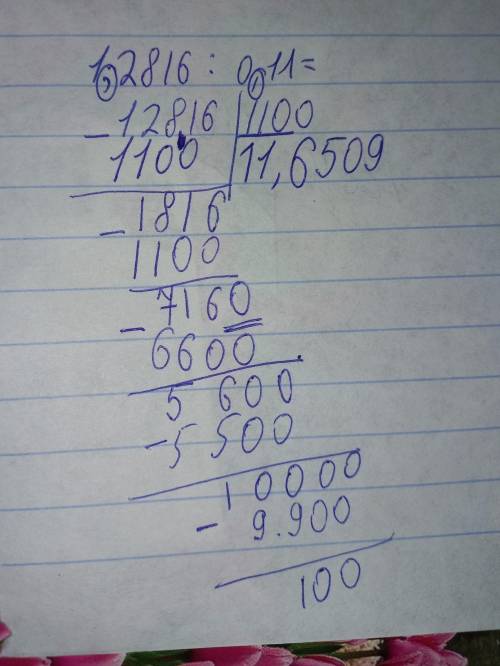 1,2816 : 0,11=
-12816 | 1100
1100 | 11,6509
-1816
1100
-7160
6600
5 600
-5 500
10000
-9.900
100